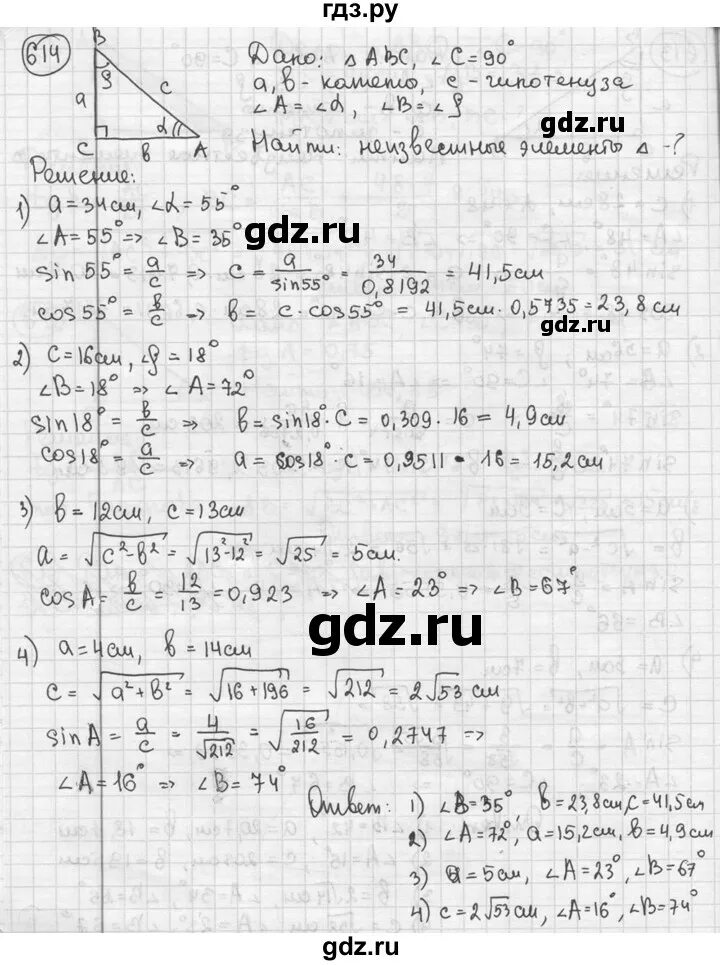 гдз.ру
614
B
β
a
c
α
C
в
A
Дано: △ ABC, ∠ C=90°
a, в - катеты, c - гипотенуза
∠A = ∠α, ∠B = ∠β
Найти: неизвестные элементы △ -?
Решение:
1) a = 34см, ∠α = 55°
∠A = 55° => ∠B = 35°
gdz.ru
sin55° = a/c => c = a/sin55° = 34/0,8192 = 41,5см
cos55° = в/c => в = c · cos55° = 41,5см · 0,5735 = 23,8 см
gdz.ru
2) c = 16см, ∠β = 18°
∠B = 18° => ∠ A = 72°
sin18° = в/c => в = sin18° · c = 0,309 · 16 = 4,9см
cos18° = a/c => a = cos18° · c = 0,9511 · 16 = 15,2см
gdz.ru
3) в = 12см, c = 13см
a = √(c²-в²) = √(13²-12²) = √25 = 5см.
cosA = в/c = 12/13 = 0,923 => ∠A = 23° => ∠B = 67°
gdz.ru
4) a = 4см, в = 14см
c = √(a²+в²) = √(16+196) = √212 = 2√53 см
sinA = a/c = 4/√212 = √(16/212) = 0,2747 =>
∠A = 16° => ∠B = 74°
Ответ: 1) ∠B = 35° в = 23,8см, c = 41,5см
2) ∠A = 72°, a = 15,2см, в = 4,9см
3) a = 5см, ∠A = 23°, ∠B = 67°
4) c = 2√53 см, ∠A = 16°, ∠B = 74°
gdz.ru
gdz.ru